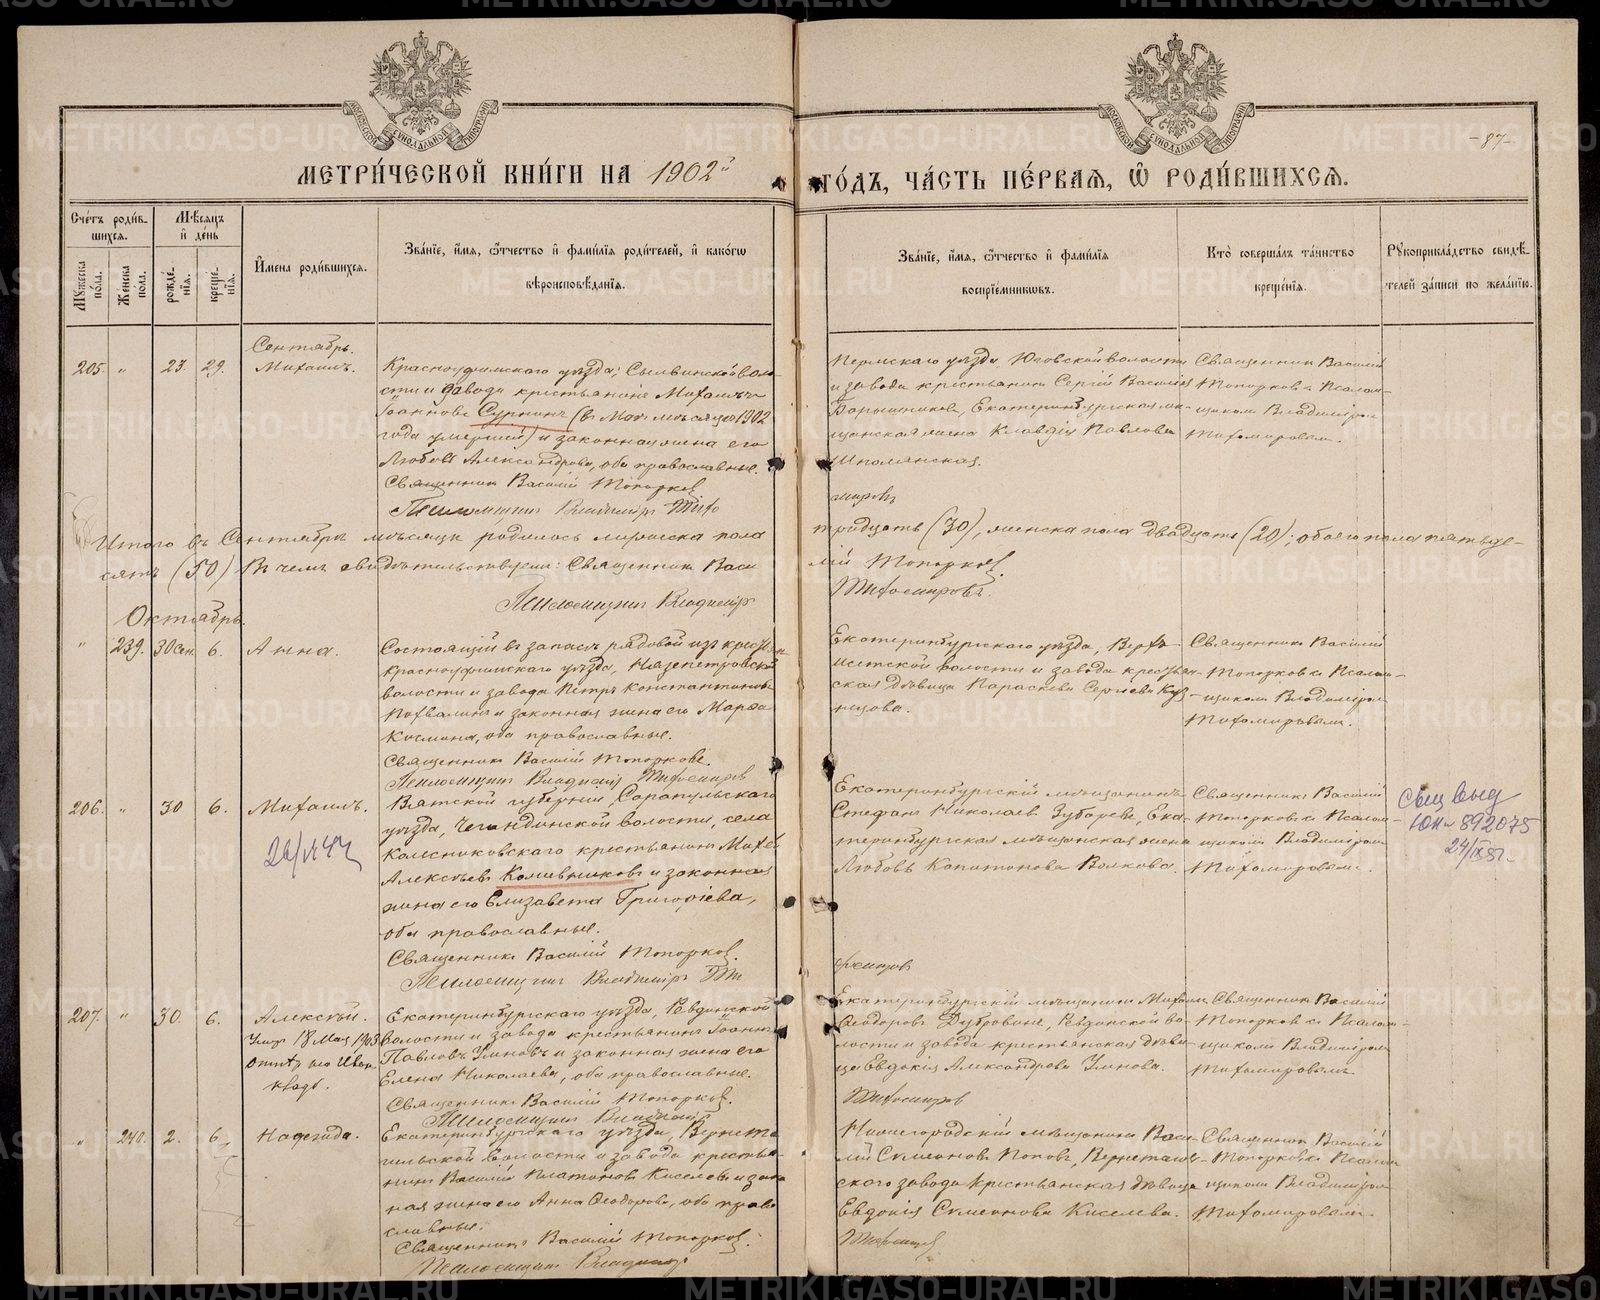 МЕТРИ́ЧЕСКОЙ КНИ́ГИ НА 1902й
ГО́ДЪ, ЧА́СТЬ ПЕ́РВАЯ, Ѡ҆ РОДИ́ВШИХСЯ.
-87-
Сче́тъ роди́в-
шихся.
Мѣ́сяцъ
и҆ де́нь
Мꙋ́жеска по́ла.
Же́нска по́ла.
рожде́-
нїя.
креще́-
нїя.
И҆мена роди́вшихся.
Зва́нїе, и҆́мя, ѻ҆́тчество и҆ фами́лїя роди́телей, и҆ како́гѡ
вѣроисповѣ́данїя.
Зва́нїе, и҆́мя, ѻ҆́тчество и҆ фами́лїя
воспрїе́мникѡвъ.
Кто̀ соверша́лъ та́инство
креще́нїя.
Рꙋкоприкла́дство свидѣ́-
телей за́писи по жела́нїю.
Сентябрь.
205. " 23. 29. Михаилъ.
Красноуфимскаго уѣзда, Сылвинской воло-
сти и завода крестьянинъ Михаилъ
Іоанновъ Сурнинъ (въ Маѣ мѣсяцѣ 1902
года умершій) и законная жена его
Любовь Александрова, оба православные.
Священникъ Василій Топорковъ
Псаломщикъ Владиміръ Тихо
Пермскаго уѣзда, Юговской волости
и завода крестьянинъ Сергій Василіевъ
Барышниковъ, Екатеринбургская мѣ-
щанская жена Клавдія Павлова
Шполянская.
мировъ
Священникъ Василій
Топорковъ съ Псалом-
щикомъ Владиміромъ
Тихомировымъ.
Итого въ Сентябрѣ мѣсяцѣ родилось мужеска пола
тридцать (30), женска пола двадцать (20); обоего пола пятьде-
сятъ (50) Въ чемъ свидѣтельствуемъ: Священникъ Васи
лій Топорковъ.
Псаломщикъ Владиміръ
Тихомировъ.
Октябрь.
" 239. 30 Сен. 6. Анна.
Состоящій въ запасѣ рядовой изъ крестьянъ
Красноуфимскаго уѣзда, Нязепетровской
волости и завода Петръ Константиновъ
Похвалинъ и законная жена его Марѳа
Космина, оба православные.
Священникъ Василій Топорковъ.
Псаломщикъ Владиміръ Тихомировъ
Екатеринбургскаго уѣзда, Верхъ-
Исетской волости и завода крестьян-
ская дѣвица Параскева Сергіева Куз-
нецова.
Священникъ Василій
Топорковъ съ Псалом-
щикомъ Владиміромъ
Тихомировымъ.
206. " 30 6. Михаилъ.
Вятской губерніи, Сарапульскаго
уѣзда, Чегандинской волости, села
Колесниковскаго крестьянинъ Михаилъ
Алексѣевъ и законная
жена его Елизавета Григоріева,
оба православные.
Священникъ Василій Топорковъ.
Псаломщикъ Владиміръ Ти
Екатеринбургскій мѣщанинъ
Стефанъ Николаевъ Зубаревъ, Ека-
теринбургская мѣщанская жена
Любовь Капитонова Волкова.
хомировъ
Священникъ Василій
Топорковъ съ Псалом-
щикомъ Владиміромъ
Тихомировымъ.
892075
207. " 30. 6. Алексѣй.
Умеръ 18 Мая 1903
Екатеринбургскаго уѣзда, Ревдинской
волости и завода крестьянинъ Іоаннъ
Павловъ Уминовъ и законная жена его
Елена Николаева, оба православные.
Священникъ Василій Топорковъ.
Псаломщикъ Владиміръ
Екатеринбургскій мѣщанинъ Михаилъ
Ѳеодоровъ Дубровинъ, Ревдинской во-
лости и завода крестьянская дѣви-
ца Евдокія Александрова Уминова.
Тихомировъ
Священникъ Василій
Топорковъ съ Псалом-
щикомъ Владиміромъ
Тихомировымъ.
" 240. 2. 6. Надежда.
Екатеринбургскаго уѣзда, Верхнета-
гильской волости и завода крестья-
нинъ Василій Платоновъ Киселевъ и закон-
ная жена его Анна Ѳеодорова, оба право-
славные.
Священникъ Василій Топорковъ.
Псаломщикъ Владиміръ
Нижегородскій мѣщанинъ Васи-
лій Симеоновъ Поповъ, Верхнетагиль-
скаго завода крестьянская дѣвица
Евдокія Симеонова Киселева.
Тихомировъ
Священникъ Василій
Топорковъ съ Псалом-
щикомъ Владиміромъ
Тихомировымъ.
METRIKI.GASO-URAL.RU